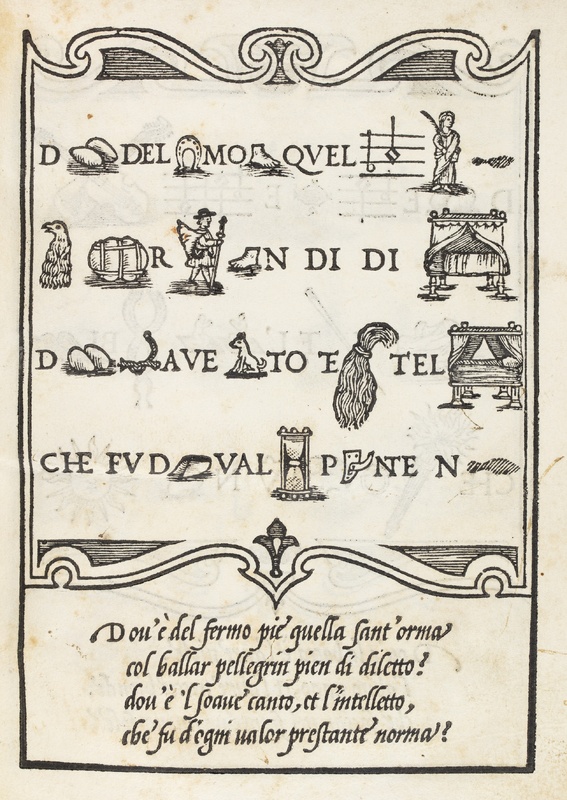 D DEL MO QVEL
R N DI DI
D AVE TO E TEL
CHE FV D VAL P NTE N
Dou'è del fermo piè quella sant'orma
col ballar pellegrin pien di diletto?
dou'è 'l soave canto, et l'intelletto,
che fu d'ogni valor prestante norma?